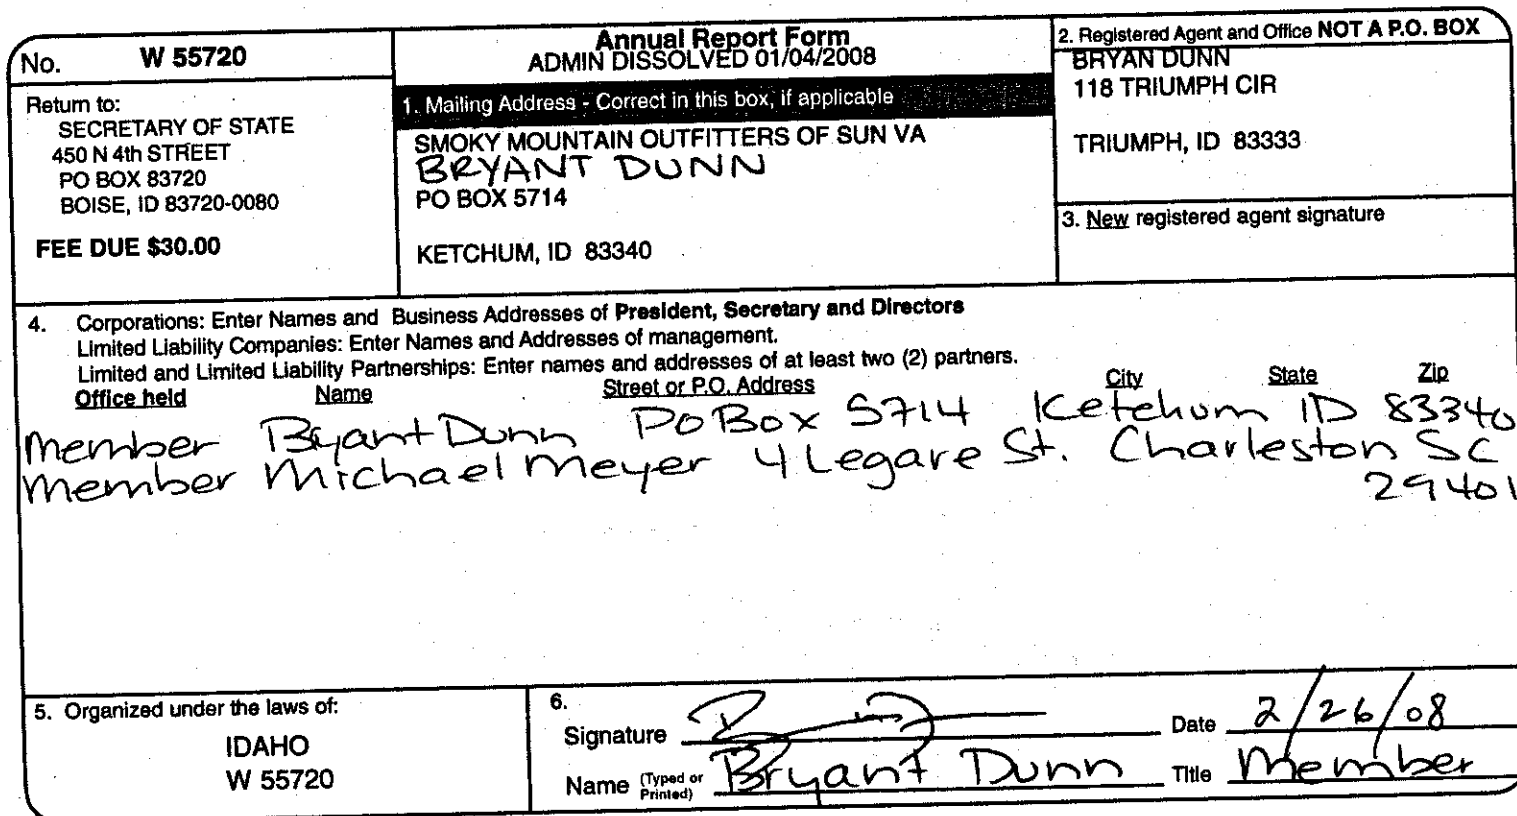 No. W 55720
Return to:
SECRETARY OF STATE
450 N 4th STREET
PO BOX 83720
BOISE, ID 83720-0080
FEE DUE $30.00
Annual Report Form
ADMIN DISSOLVED 01/04/2008
1. Mailing Address - Correct in this box, if applicable
SMOKY MOUNTAIN OUTFITTERS OF SUN VA
BRYANT DUNN
PO BOX 5714
KETCHUM, ID 83340
2. Registered Agent and Office NOT A P.O. BOX
BRYAN DUNN
118 TRIUMPH CIR
TRIUMPH, ID 83333
3. New registered agent signature
4. Corporations: Enter Names and Business Addresses of President, Secretary and Directors
Limited Liability Companies: Enter Names and Addresses of management.
Limited and Limited Liability Partnerships: Enter names and addresses of at least two (2) partners.
Office held Name Street or P.O. Address City State Zip
Member Bryant Dunn PO Box 5714 Ketchum ID 83340
Member Michael Meyer 4 Legare St. Charleston SC
29401
5. Organized under the laws of:
IDAHO
W 55720
6.
Signature Date 2/26/08
Name (Typed or Printed) Bryant Dunn Title Member